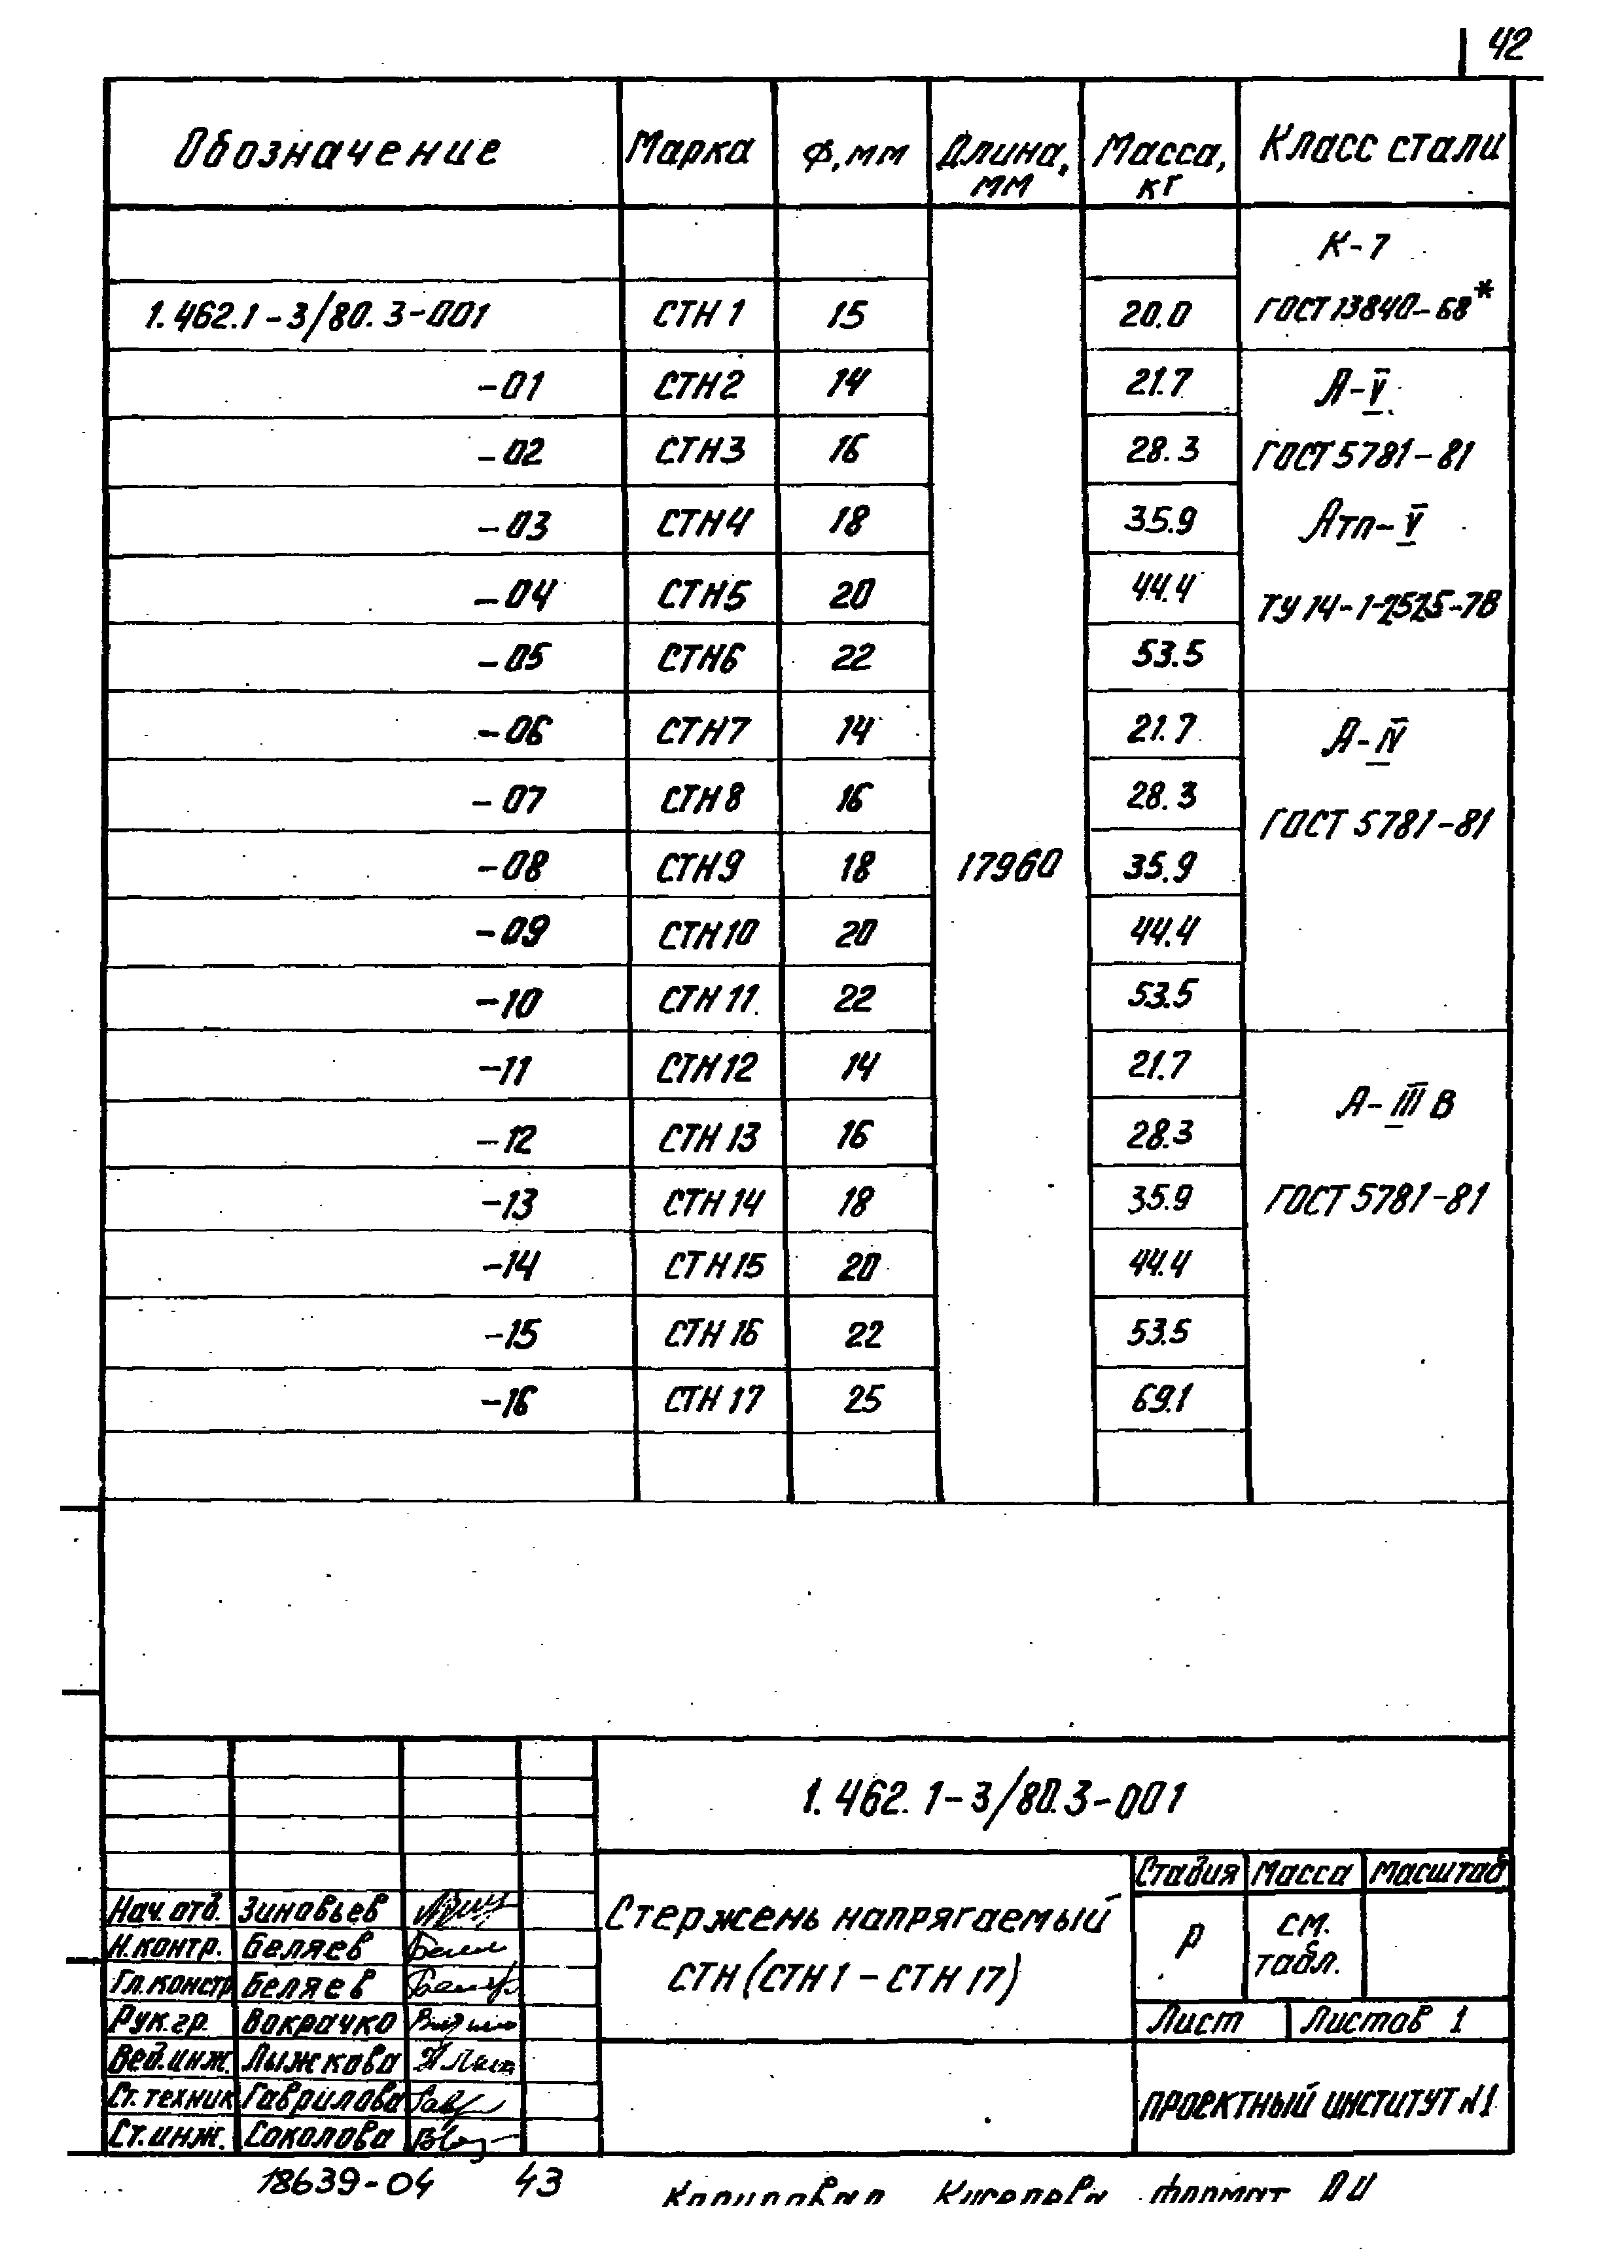 42
Обозначение Марка Ф, мм Длина, мм Масса, кг Класс стали
К-7
1.462.1-3/80.3-001 СТН 1 15 20.0 ГОСТ 13840-68*
-01 СТН 2 14 21.7 А-V
-02 СТН 3 16 28.3 ГОСТ 5781-81
-03 СТН 4 18 35.9 Атп-V
-04 СТН 5 20 44.4 ТУ 14-1-2525-78
-05 СТН 6 22 53.5
-06 СТН 7 14 21.7 А-IV
-07 СТН 8 16 28.3 ГОСТ 5781-81
-08 СТН 9 18 17960 35.9
-09 СТН 10 20 44.4
-10 СТН 11 22 53.5
-11 СТН 12 14 21.7 А-III В
-12 СТН 13 16 28.3
-13 СТН 14 18 35.9 ГОСТ 5781-81
-14 СТН 15 20 44.4
-15 СТН 16 22 53.5
-16 СТН 17 25 69.1
1.462.1-3/80.3-001
Стадия Масса Масштаб
Нач. отд. Зиновьев
Н. контр. Беляев
Гл. констр Беляев
Рук. гр. Вокрачко
Вед. инж. Лыжкова
Ст. техник Гаврилова
Ст. инж. Соколова
Стержень напрягаемый
СТН (СТН 1 - СТН 17)
Р см. табл.
Лист Листов 1
ПРОЕКТНЫЙ ИНСТИТУТ №1
18639-04 43
Копировал формат